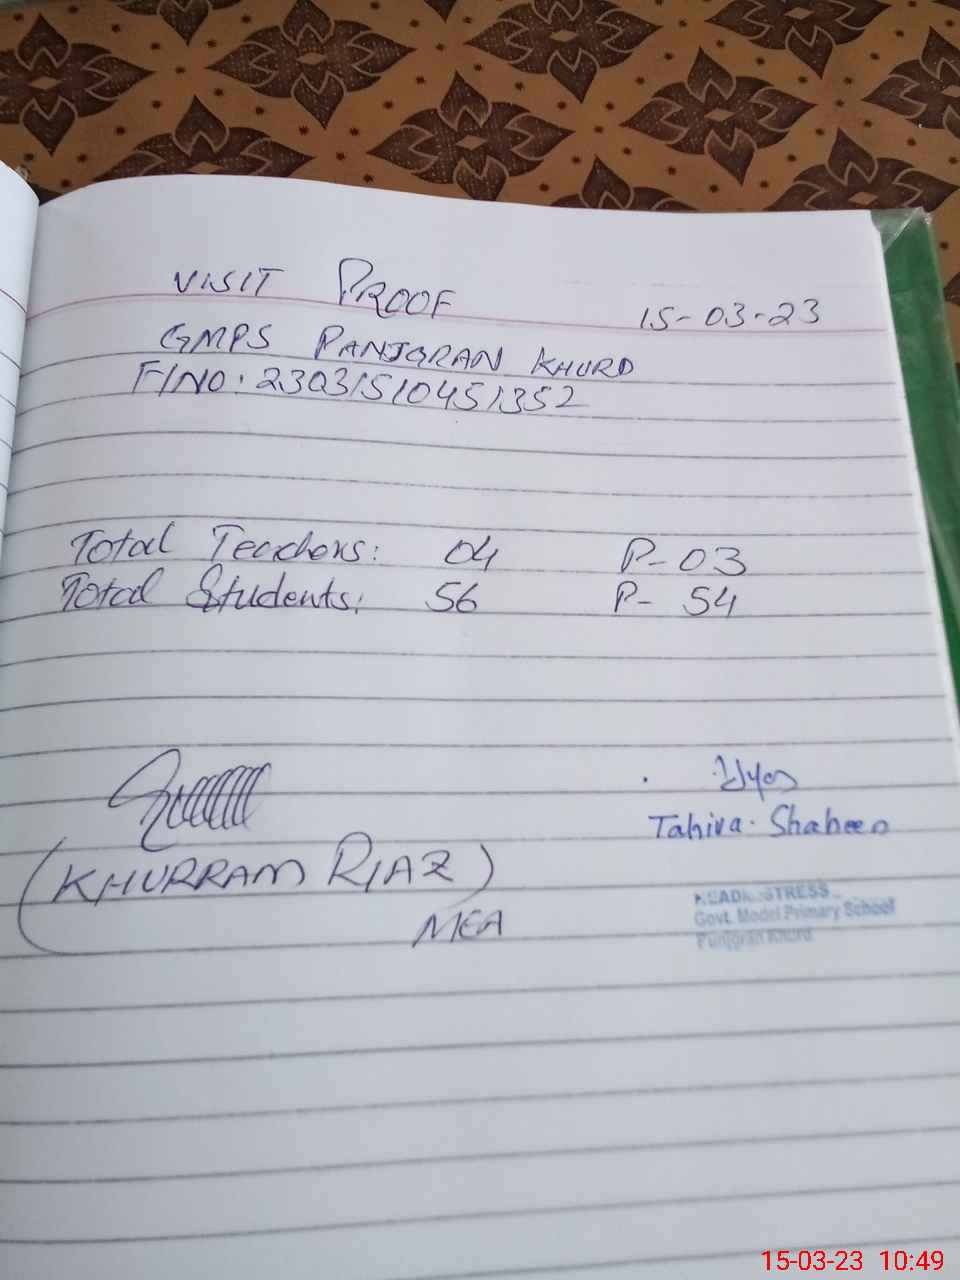 VISIT PROOF 15-03-23
GMPS PANJGRAN KHURD
F/NO: 23031510451352
Total Teachers: 04 P-03
Total Students: 56 P- 54
Tahira Shaheen
(KHURRAM RIAZ)
MEA
HEADMISTRESS
Govt. Model Primary School
Punjgran Khurd
15-03-23 10:49